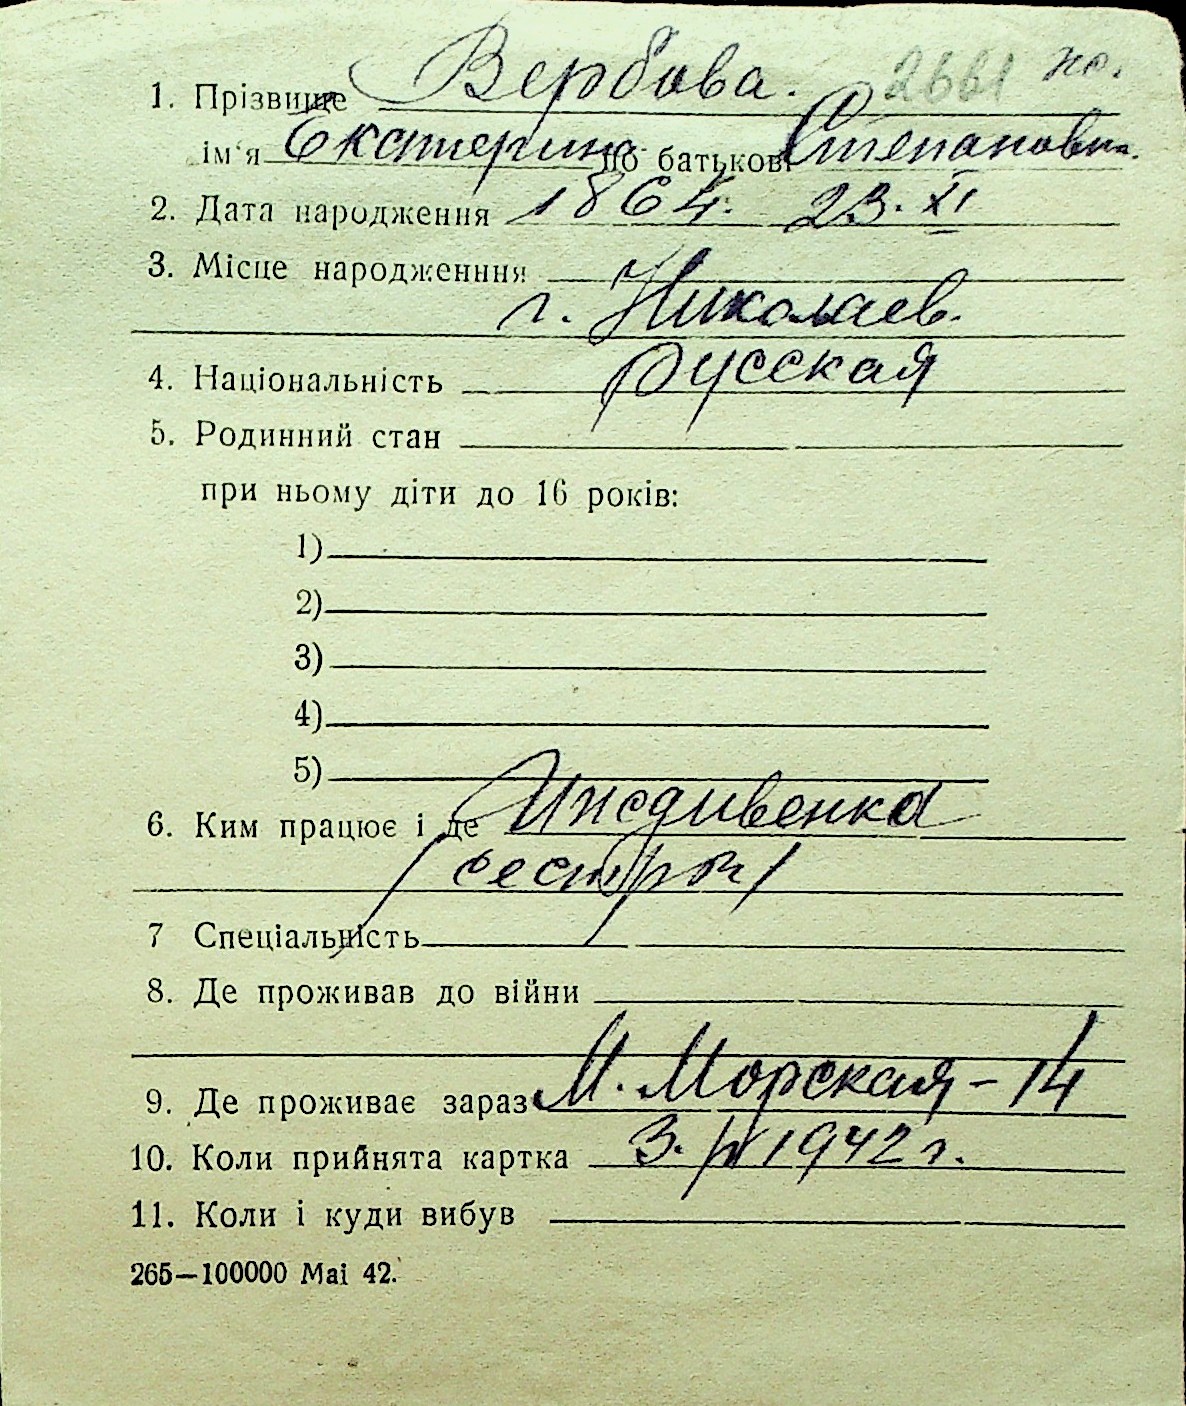 1. Прізвище Вербова. 2661 жо.
ім'я Екатерина по батькові Степановна.
2. Дата народження 1864. 23. XI
3. Місце народженння
г. Николаев.
4. Національність русская
5. Родинний стан
при ньому діти до 16 років:
1)
2)
3)
4)
5)
6. Ким працює і де Иждивенка
/сестры/
7 Спеціальність
8. Де проживав до війни
9. Де проживає зараз М. Морская - 14
10. Коли прийнята картка 3. 1942 г.
11. Коли і куди вибув
265—100000 Mai 42.